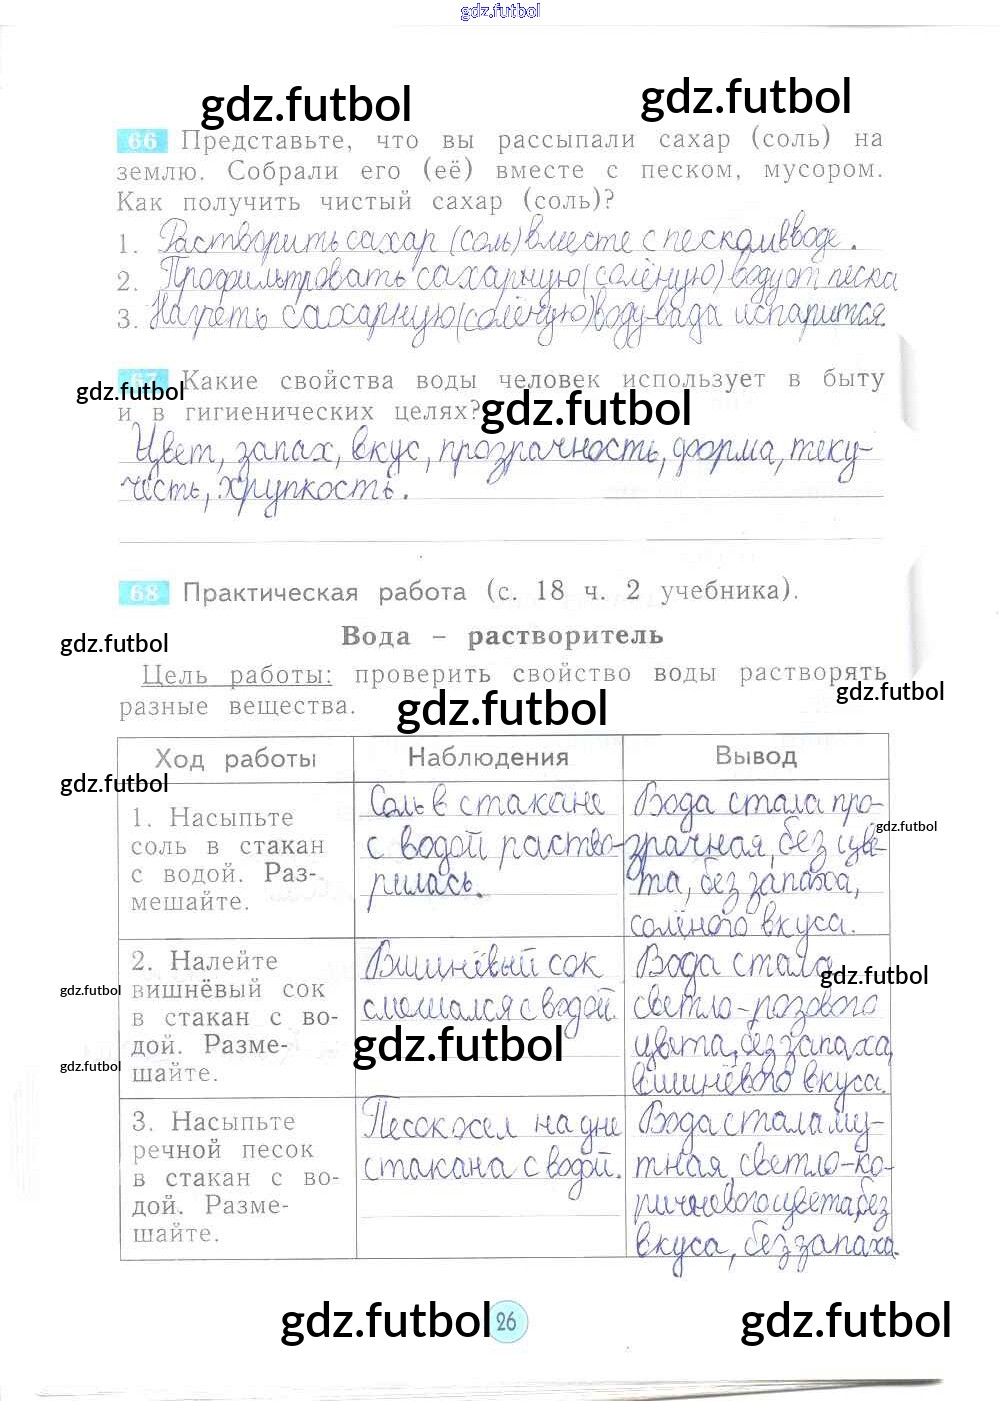 gdz.futbol
gdz.futbol
gdz.futbol
66 Представьте, что вы рассыпали сахар (соль) на
землю. Собрали его (её) вместе с песком, мусором.
Как получить чистый сахар (соль)?
1. Растворить сахар (соль) вместе с песком в воде.
2. Профильтровать сахарную (солёную) воду от песка
3. Нагреть сахарную (солёную) воду-вада испарится.
67 Какие свойства воды человек использует в быту
gdz.futbol
и в гигиенических целях?
gdz.futbol
Цвет, запах, вкус, прозрачность, форма, теку-
честь, хрупкость.
68 Практическая работа (с. 18 ч. 2 учебника).
Вода – растворитель
gdz.futbol
Цель работы: проверить свойство воды растворять
gdz.futbol
разные вещества.
gdz.futbol
Ход работы
Наблюдения
Вывод
gdz.futbol
1. Насыпьте
соль в стакан
с водой. Раз-
мешайте.
Соль в стакане
с водой раство-
рилась.
Вода стала про-
gdz.futbol
зрачная, без цве-
та, без запаха,
солёного вкуса.
2. Налейте
вишнёвый сок
в стакан с во-
дой. Разме-
шайте.
gdz.futbol
gdz.futbol
Вишнёвый сок
смешался с водой.
gdz.futbol
Вода стала
gdz.futbol
светло-розового
цвета, без запаха,
вишнёвого вкуса.
3. Насыпьте
речной песок
в стакан с во-
дой. Разме-
шайте.
Песок осел на дне
стакана с водой.
Вода стала му-
тная, светло-ко-
ричневого цвета, без
вкуса, без запаха.
gdz.futbol
26
gdz.futbol